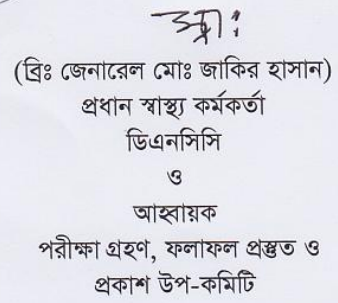 স্বাঃ
(ব্রিঃ জেনারেল মোঃ জাকির হাসান)
প্রধান স্বাস্থ্য কর্মকর্তা
ডিএনসিসি
ও
আহ্বায়ক
পরীক্ষা গ্রহণ, ফলাফল প্রস্তুত ও
প্রকাশ উপ-কমিটি